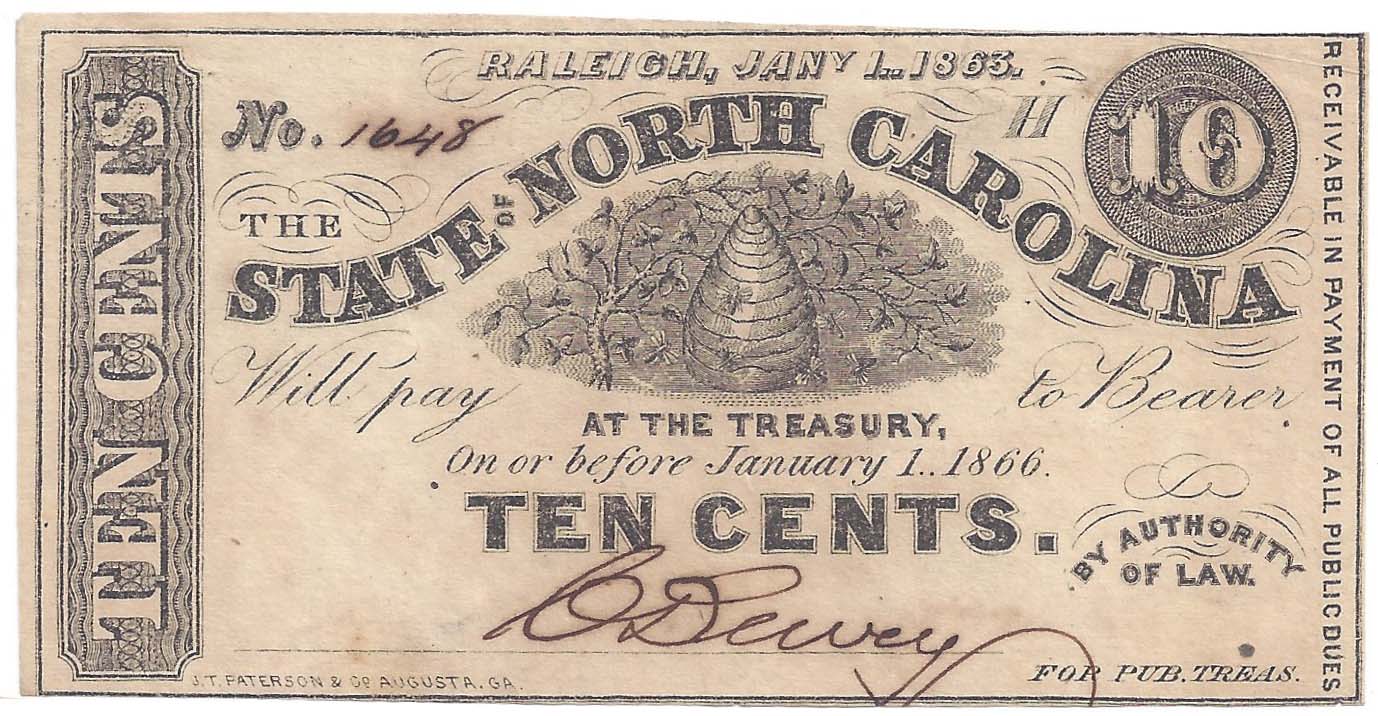 RALEIGH, JANY 1..1863.
No. 1648
H
10
THE
STATE OF NORTH CAROLINA
Will pay to Bearer
AT THE TREASURY,
On or before January 1..1866.
TEN CENTS.
BY AUTHORITY
OF LAW.
C Dewey
FOR PUB. TREAS.
J.T. PATERSON & CO AUGUSTA. GA.
TEN CENTS
RECEIVABLE IN PAYMENT OF ALL PUBLIC DUES